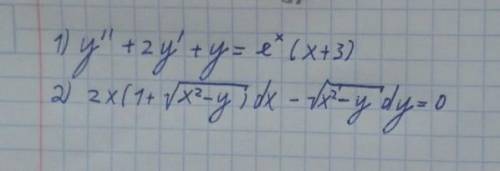 1) y'' + 2y' + y = e^x (x+3)
2) 2x(1+√(x²-y))dx - √(x²-y) dy = 0